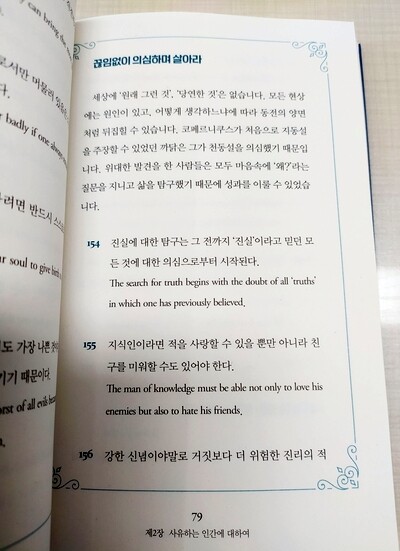 y can bring the
로서만 머물러 있
다.
badly if one always
나려면 반드시 스스
ur soul to give birth
도 가장 나쁜 것
기기 때문이다.
orst of all evils beca
n.
끊임없이 의심하며 살아라
세상에 '원래 그런 것', '당연한 것'은 없습니다. 모든 현상
에는 원인이 있고, 어떻게 생각하느냐에 따라 동전의 양면
처럼 뒤집힐 수 있습니다. 코페르니쿠스가 처음으로 지동설
을 주장할 수 있었던 까닭은 그가 천동설을 의심했기 때문입
니다. 위대한 발견을 한 사람들은 모두 마음속에 '왜?'라는
질문을 지니고 삶을 탐구했기 때문에 성과를 이룰 수 있었습
니다.
154 진실에 대한 탐구는 그 전까지 '진실'이라고 믿던 모
든 것에 대한 의심으로부터 시작된다.
The search for truth begins with the doubt of all 'truths'
in which one has previously believed.
155 지식인이라면 적을 사랑할 수 있을 뿐만 아니라 친
구를 미워할 수도 있어야 한다.
The man of knowledge must be able not only to love his
enemies but also to hate his friends.
156 강한 신념이야말로 거짓보다 더 위험한 진리의 적
79
제2장 사유하는 인간에 대하여